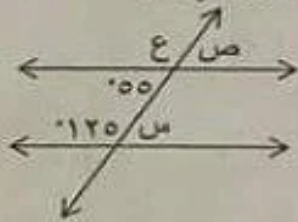 ع ص
٥٥°
١٢٥° س